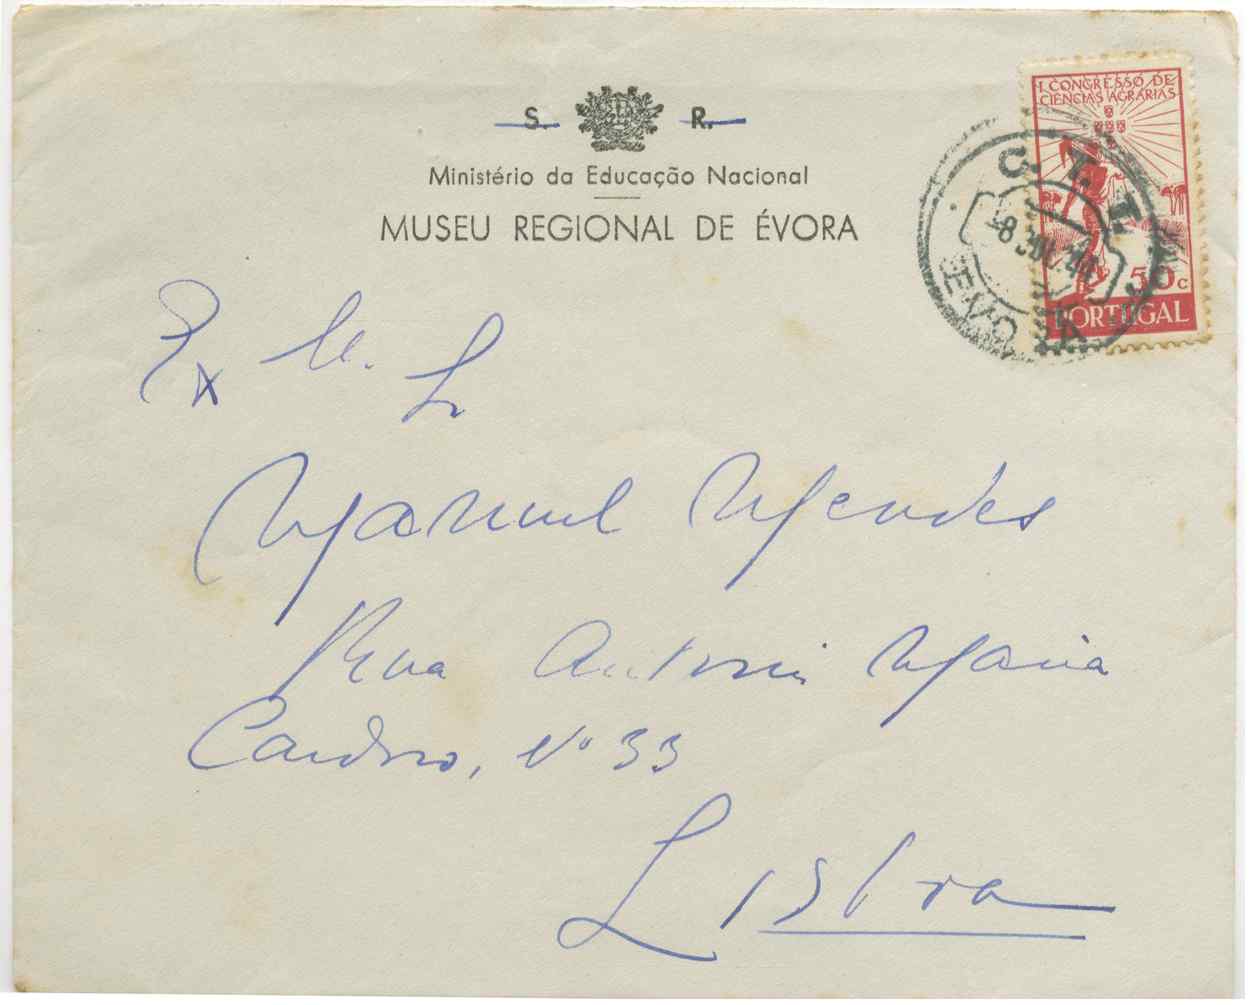 S. R.
Ministério da Educação Nacional
MUSEU REGIONAL DE ÉVORA
I CONGRESSO DE
CIÊNCIAS AGRÁRIAS
50c
PORTUGAL
C. T. T.
ÉVORA
Ex
Manuel Mendes
Rua Antonio Maria
Cardoso, Nº 33
Lisboa